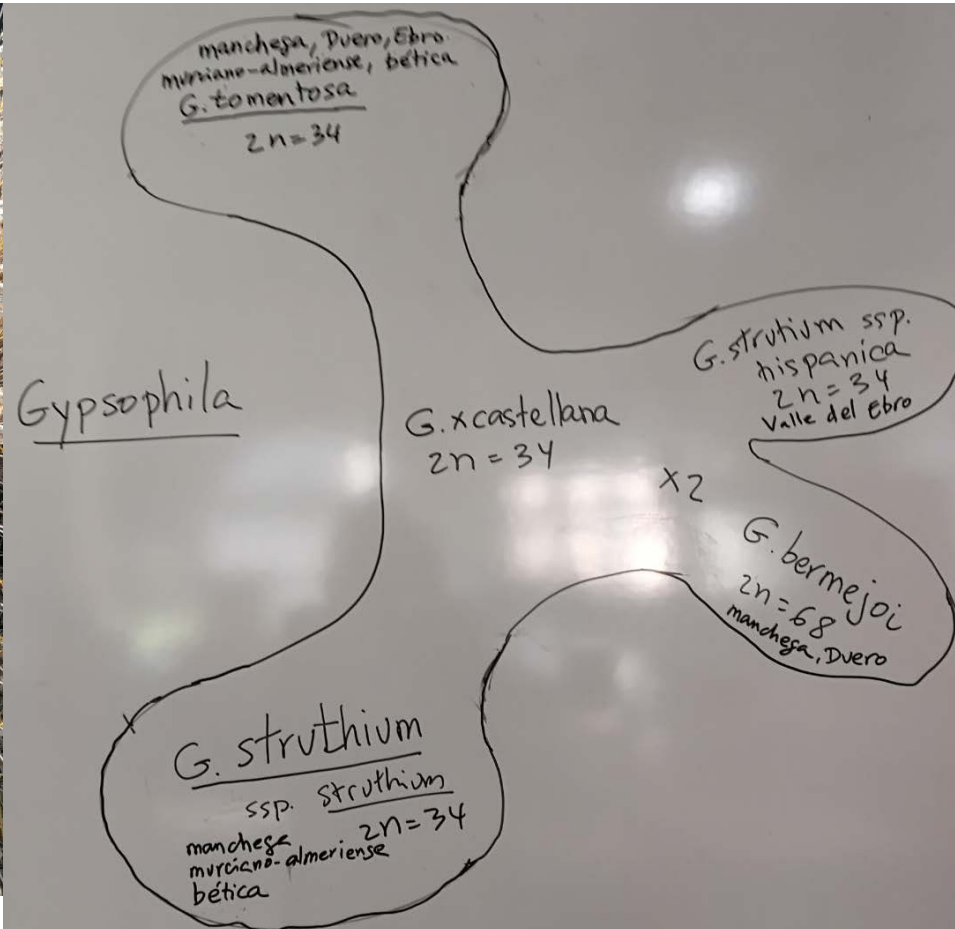 manchega, Duero, Ebro.
murciano-almeriense, bética
G. tomentosa
2n=34
Gypsophila
G. x castellana
2n = 34
x2
G. strutium ssp.
hispanica
2n = 34
Valle del Ebro
G. bermejoi
2n=68
manchega, Duero
G. struthium
ssp. struthium
2n=34
manchega
murciano-almeriense
bética